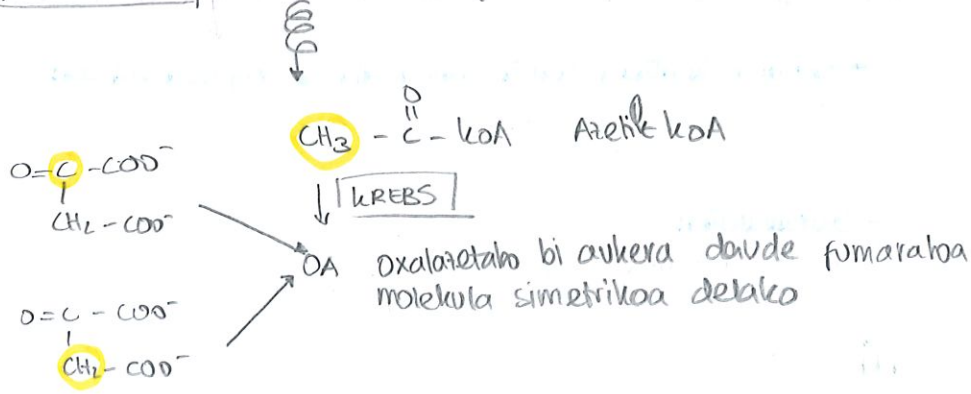 O
||
CH3 - C - KOA Azetil KOA
O=C-COO⁻
|
CH2-COO⁻
KREBS
OA oxalazetato bi aukera daude fumaratoa
molekula simetrikoa delako
O=C - COO⁻
|
CH2 - COO⁻